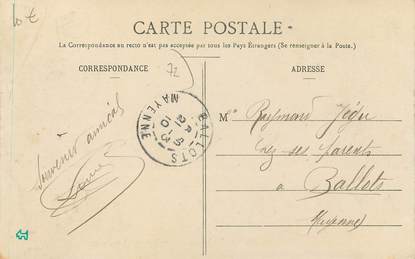 10 €
CARTE POSTALE
La Correspondance au recto n'est pas acceptée par tous les Pays Étrangers (Se renseigner à la Poste.)
CORRESPONDANCE
72
ADRESSE
BALLOTS
MAYENNE
Souvenir amical
Mr Raymond Jégu
chez ses parents
à Ballots
Mayenne